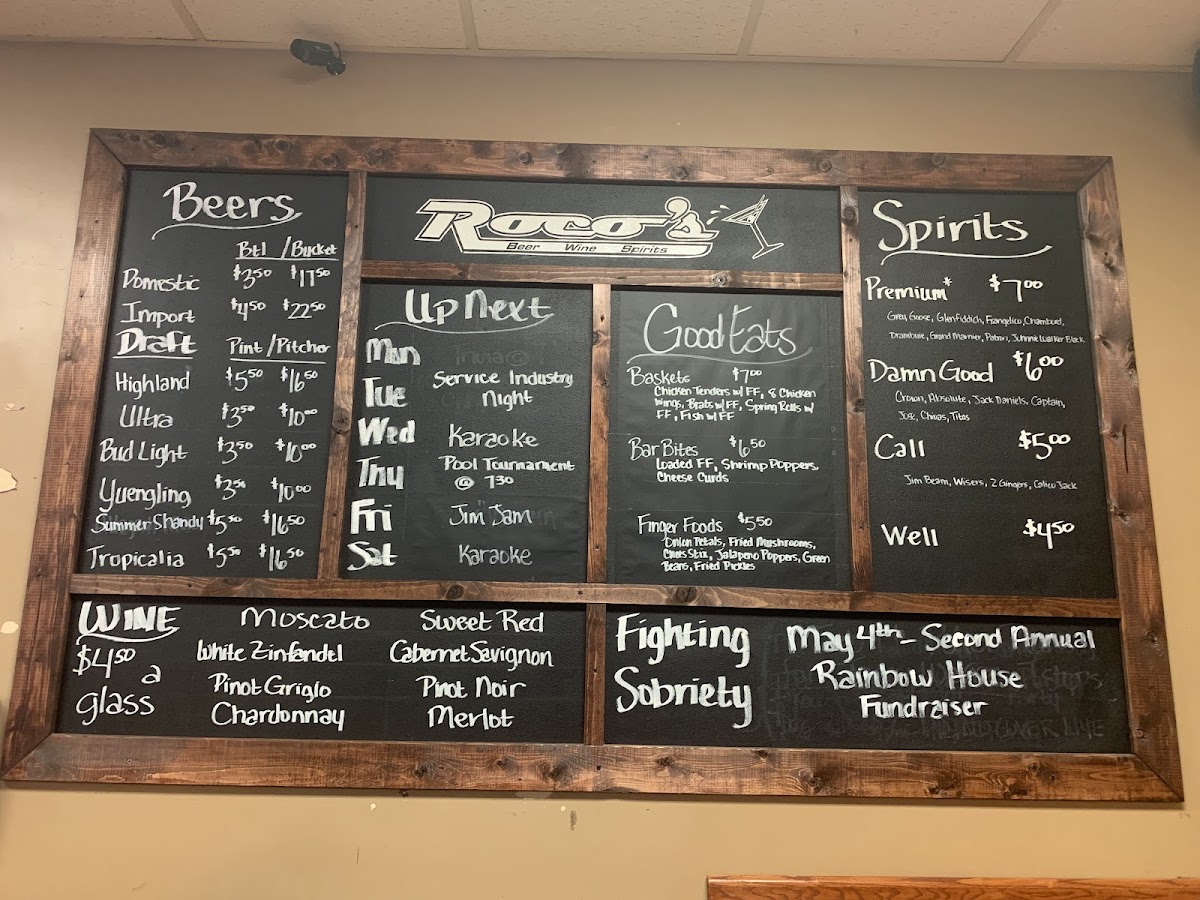 Beers
Btl / Bucket
Domestic $3.50 $17.50
Import $4.50 $22.50
Draft Pint / Pitcher
Highland $5.50 $16.50
Ultra $3.50 $10.00
Bud Light $3.50 $10.00
Yuengling $3.50 $10.00
Summer Shandy $5.50 $16.50
Tropicalia $5.50 $16.50
Roco's
Beer Wine Spirits
Up Next
Mon
Tue Service Industry
Night
Wed Karaoke
Thu Pool Tournament
@ 730
Fri Jim Jam
Sat Karaoke
Good Eats
Baskets $7.00
Chicken Tenders w/ FF, 8 Chicken
Wings, Brats w/ FF, Spring Rolls w/
FF, Fish w/ FF
Bar Bites $6.50
Loaded FF, Shrimp Poppers,
Cheese Curds
Finger Foods $5.50
Onion Petals, Fried Mushrooms,
Chees Stix, Jalapeno Poppers, Green
Beans, Fried Pickles
Spirits
Premium* $7.00
Grey Goose, Glenfiddich, Frangelico, Chambord,
Drambuie, Grand Marnier, Patron, Johnnie Walker Black
Damn Good $6.00
Crown, Absolute, Jack Daniels, Captain,
Joze, Chivas, Titos
Call $5.00
Jim Beam, Wisers, 2 Gingers, Calico Jack
Well $4.50
WINE
$4.50 a
glass
Moscato Sweet Red
White Zinfandel Cabernet Savignon
Pinot Grigio Pinot Noir
Chardonnay Merlot
Fighting
Sobriety
May 4th - Second Annual
Rainbow House
Fundraiser